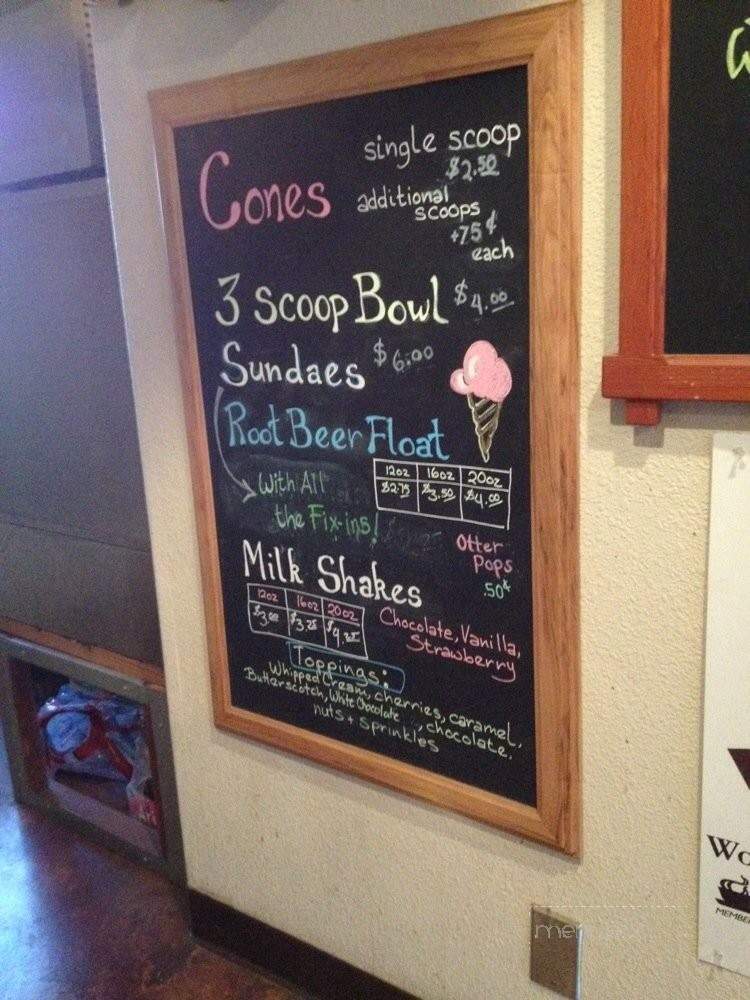 single scoop
$2.50
Cones
additional
scoops
+75¢
each
3 Scoop Bowl $4.00
Sundaes $6.00
Root Beer Float
12oz 16oz 20oz
$2.75 $3.50 $4.00
With All
the Fix-ins!
Otter
Pops
.50¢
Milk Shakes
12oz 16oz 20oz
$3.00 $3.75 $4.25
Chocolate, Vanilla,
Strawberry
Toppings:
Whipped Cream, cherries, caramel,
Butterscotch, White Chocolate, chocolate,
nuts + sprinkles
Wo
MEMBE